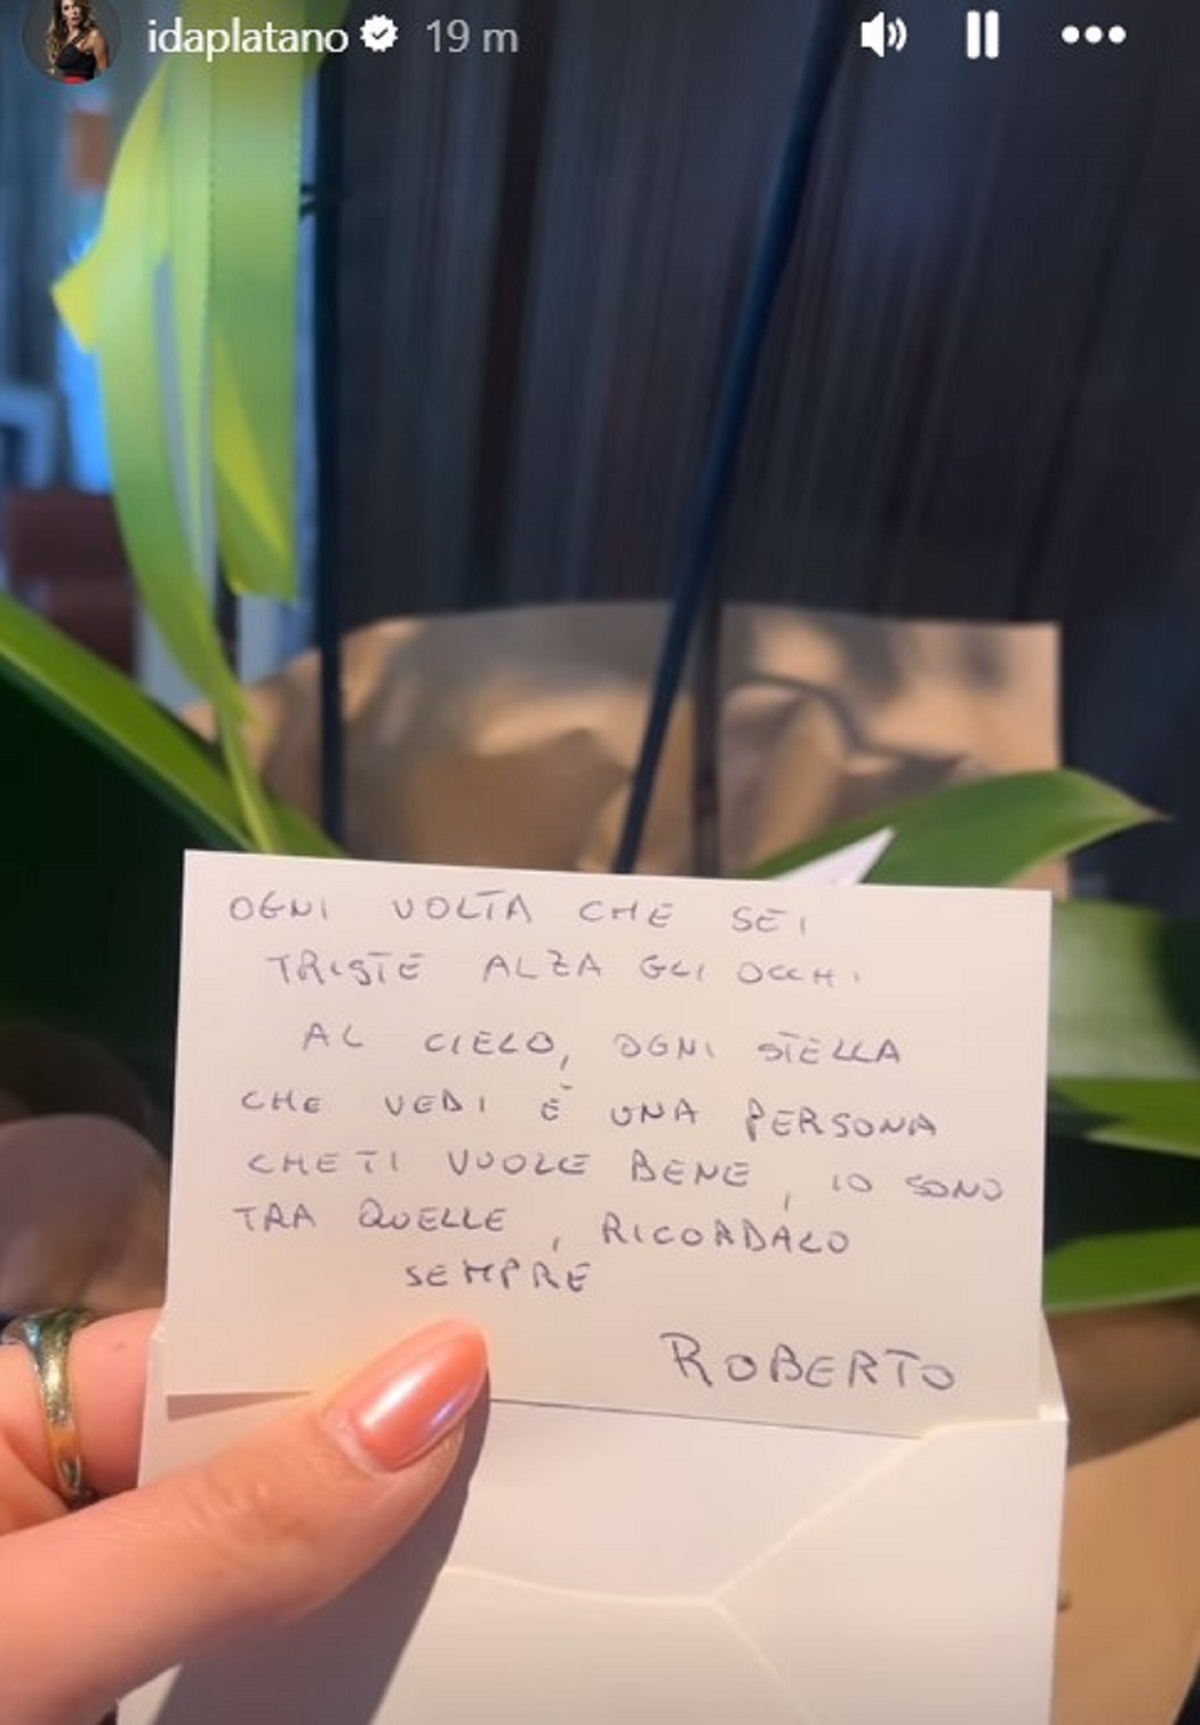 idaplatano 19 m
OGNI VOLTA CHE SEI
TRISTE ALZA GLI OCCHI
AL CIELO, OGNI STELLA
CHE VEDI È UNA PERSONA
CHE TI VUOLE BENE, IO SONO
TRA QUELLE, RICORDALO
SEMPRE
ROBERTO